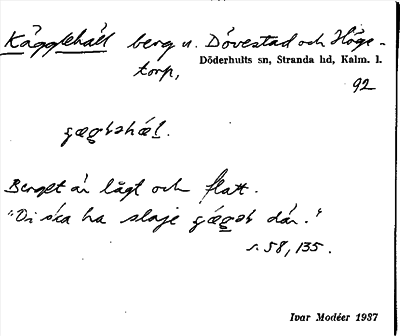 Kägglehäll berg n. Dövestad och Höge-
torp,
Döderhults sn, Stranda hd, Kalm. l.
92
Berget är lågt och flatt.
"Di ska ha slaje där."
s. 58, 135.
Ivar Modéer 1937